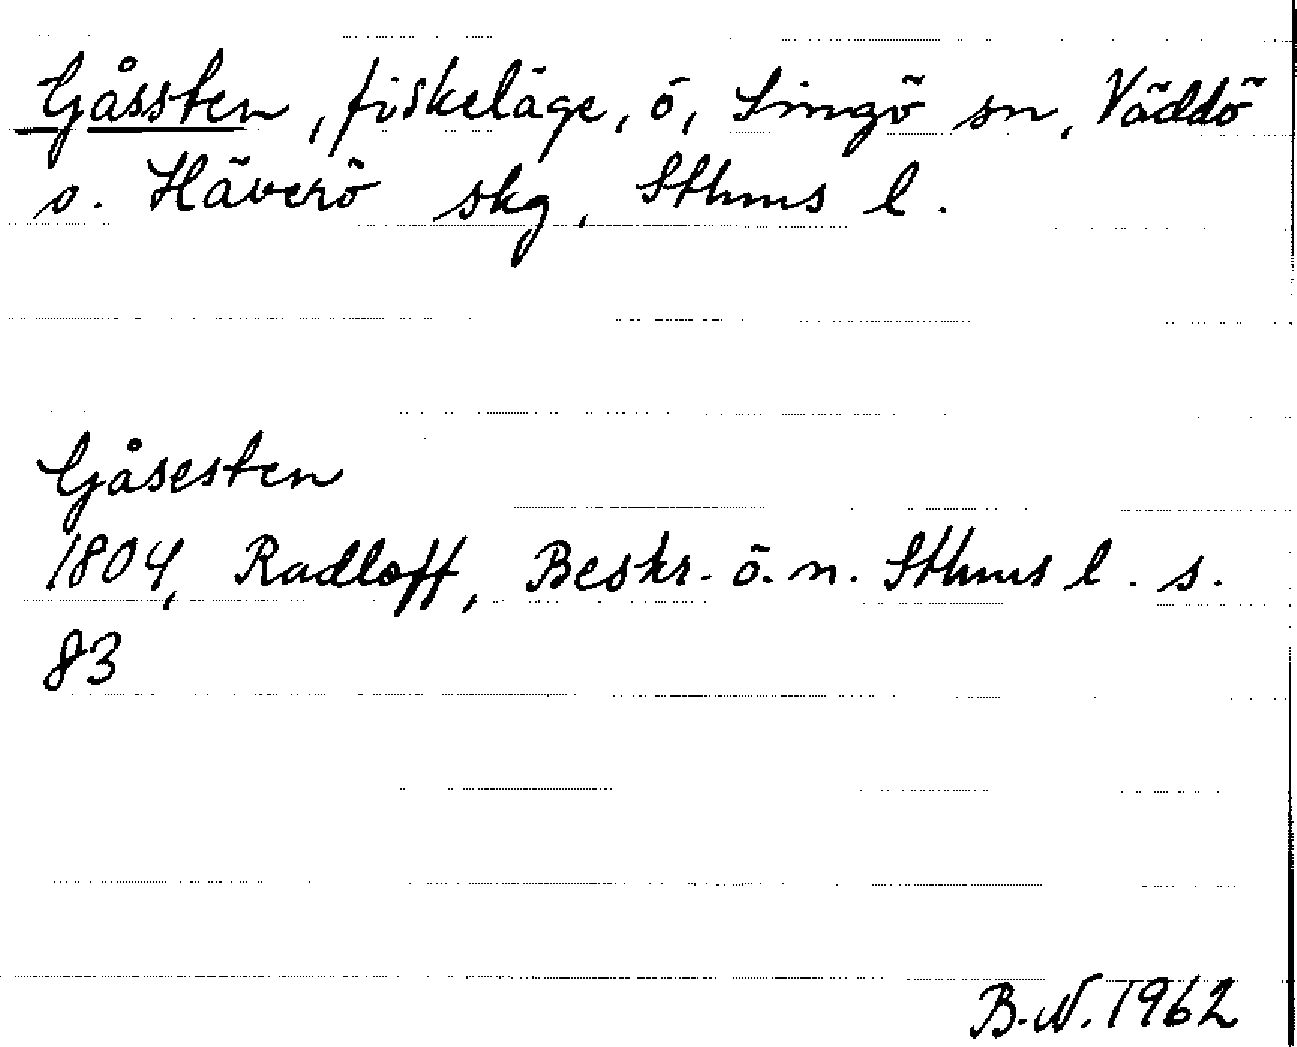 Gåssten, fiskeläge, ö, Singö sn, Väddö
o. Häverö skg, Sthms l.
Gåsesten
1804, Radloff, Beskr. ö. n. Sthms l. s.
83
B.N. 1962